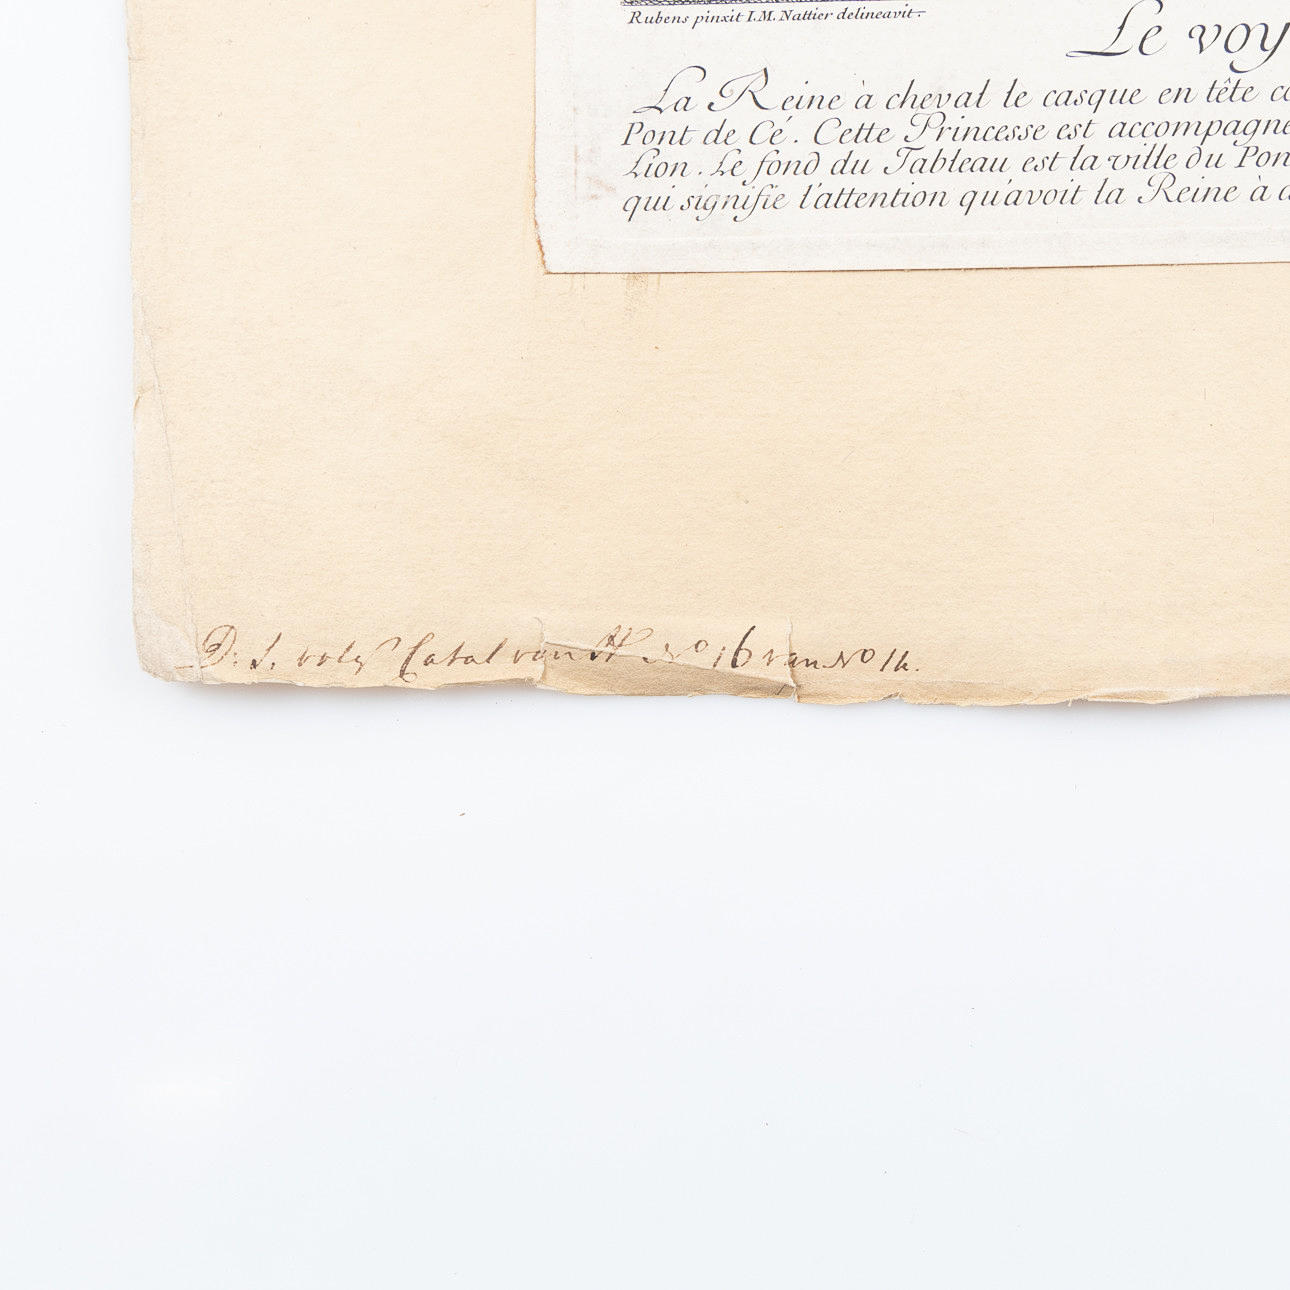 Rubens pinxit I.M. Nattier delineavit.
Le voy
La Reine à cheval le casque en tête
Pont de Cé. Cette Princesse est accompagne
Lion. Le fond du Tableau est la ville du Pon
qui signifie l'attention qu'avoit la Reine à
D: S. volg Catal van No 16 van No 14.